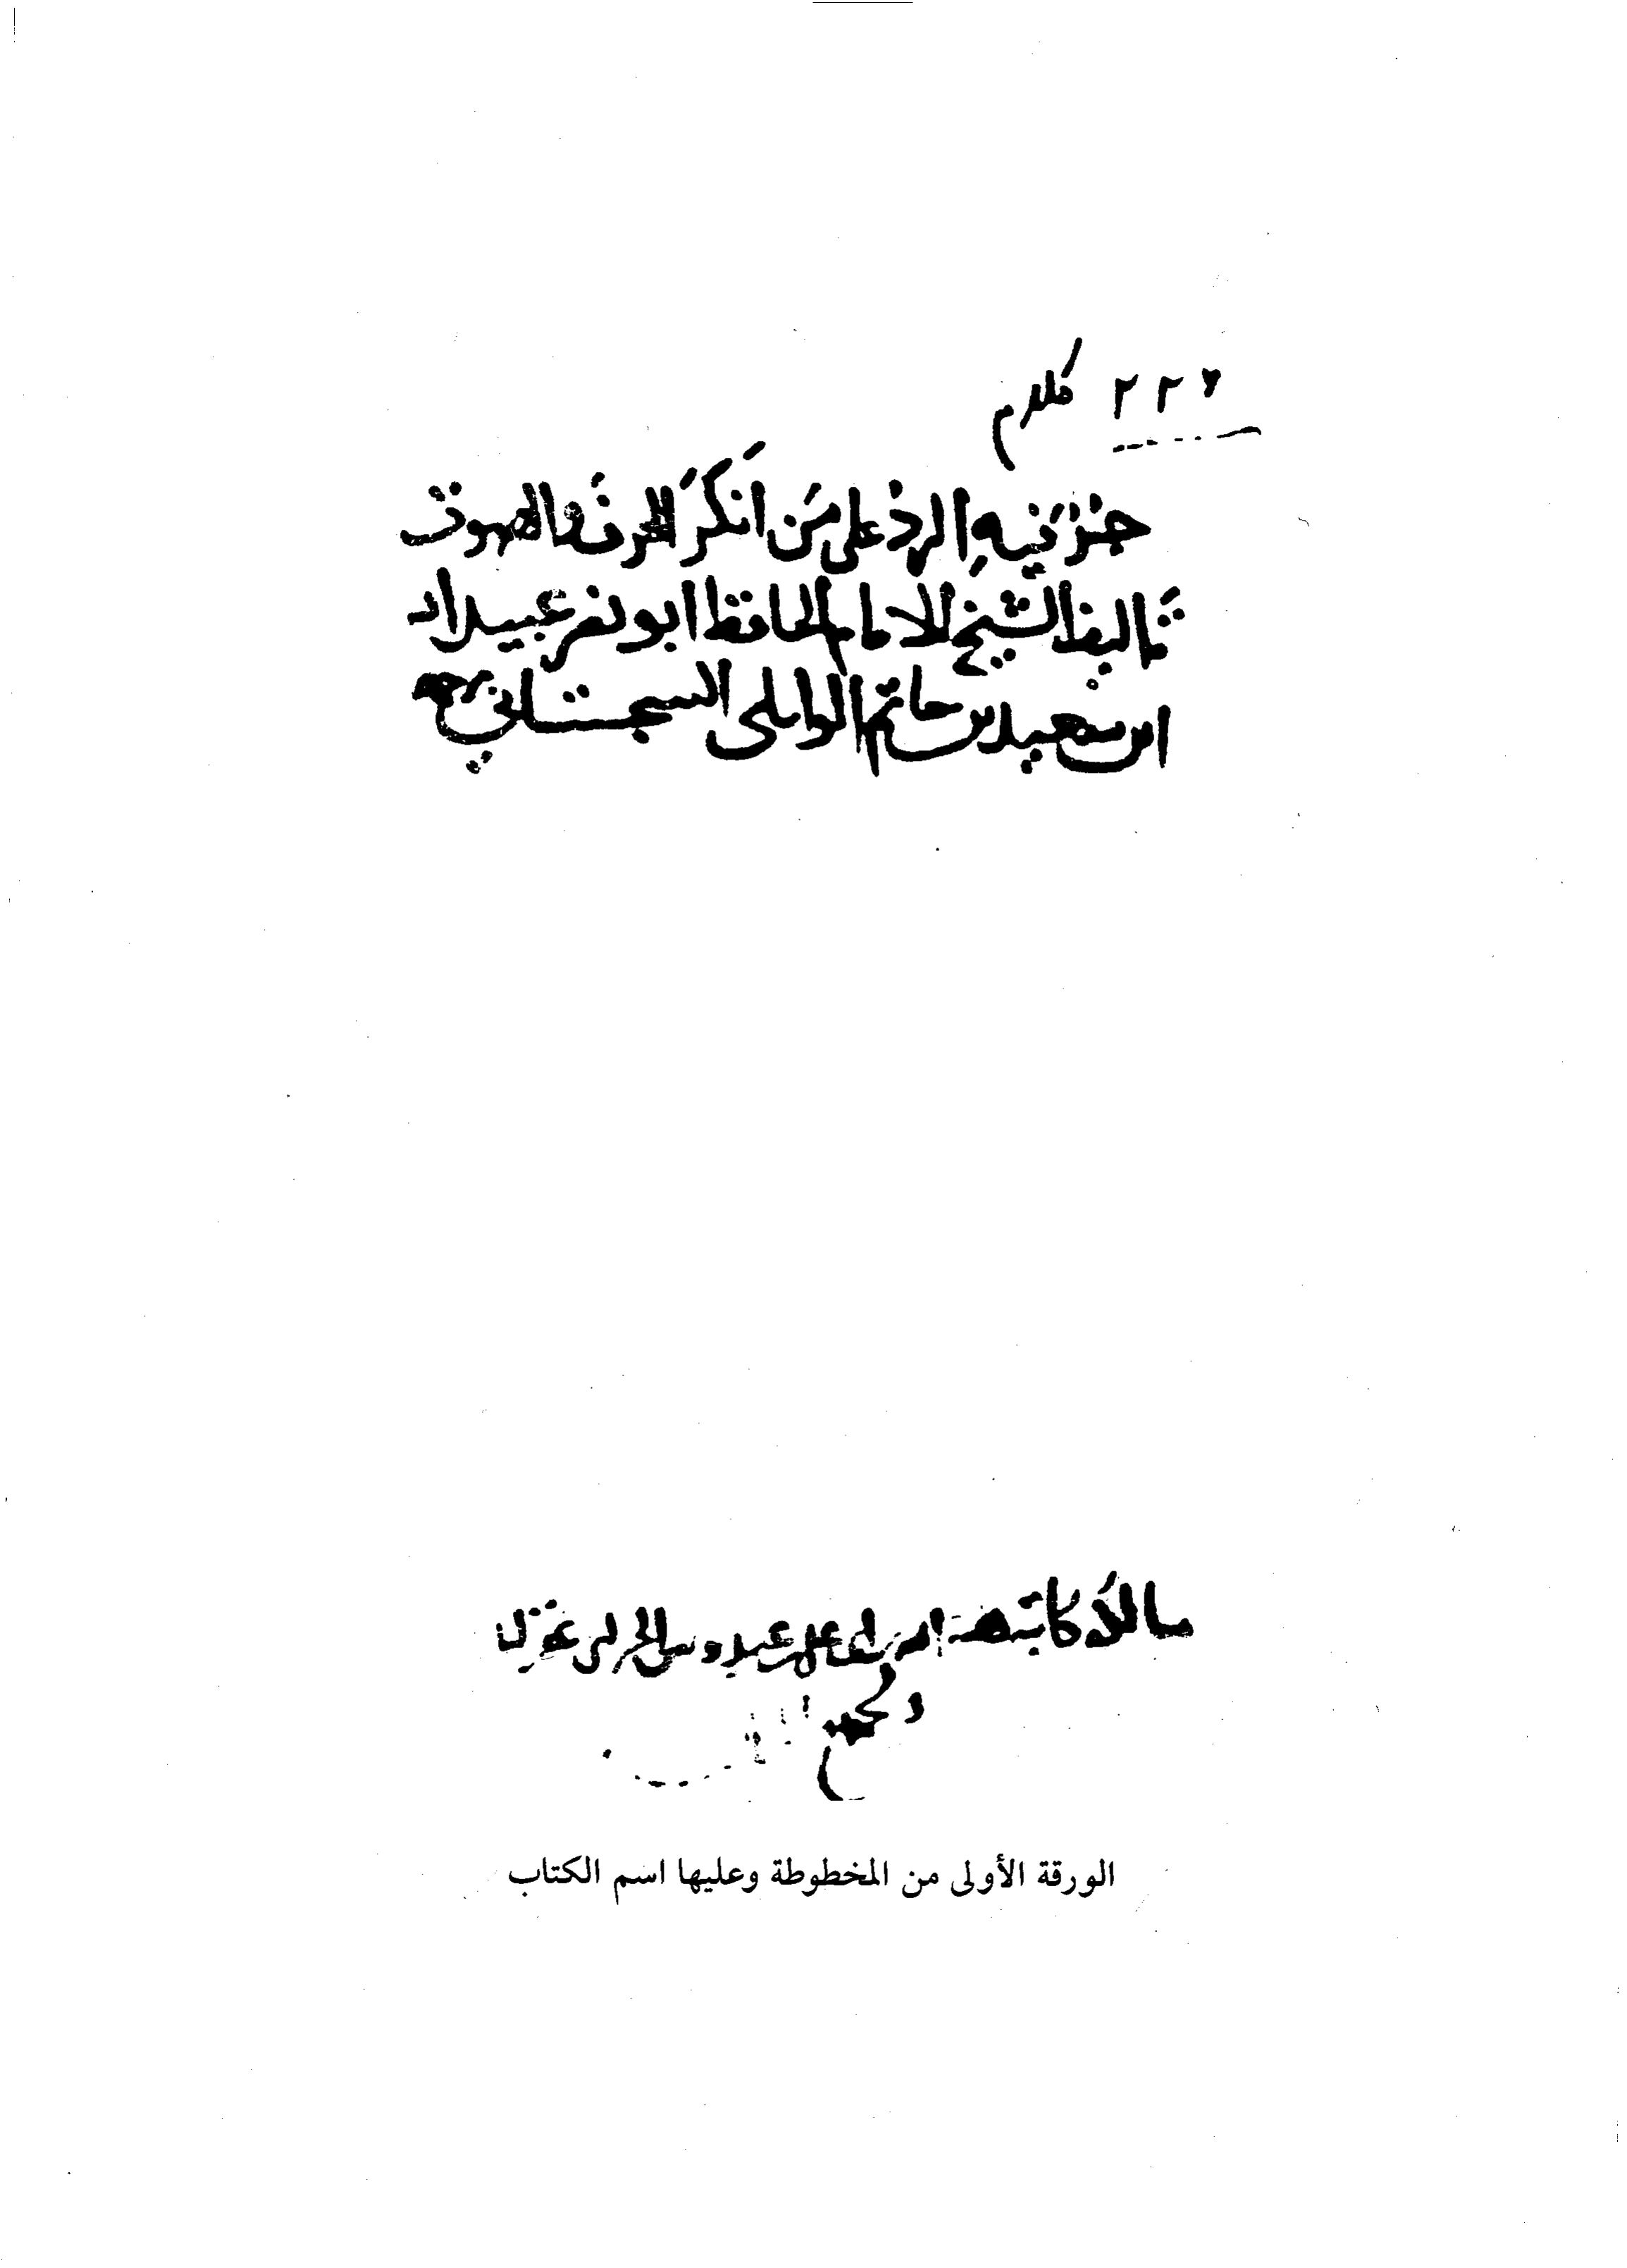 ٢٢٦ كلام
جزؤ فيه الرد على من انكر الحرف والصوت
تاليف الشيخ الامام الحافظ ابو نصر عبيد الله
ابن سعيد بن حاتم الوايلي السجستاني
مالكه كاتبه
الورقة الأولى من المخطوطة وعليها اسم الكتاب